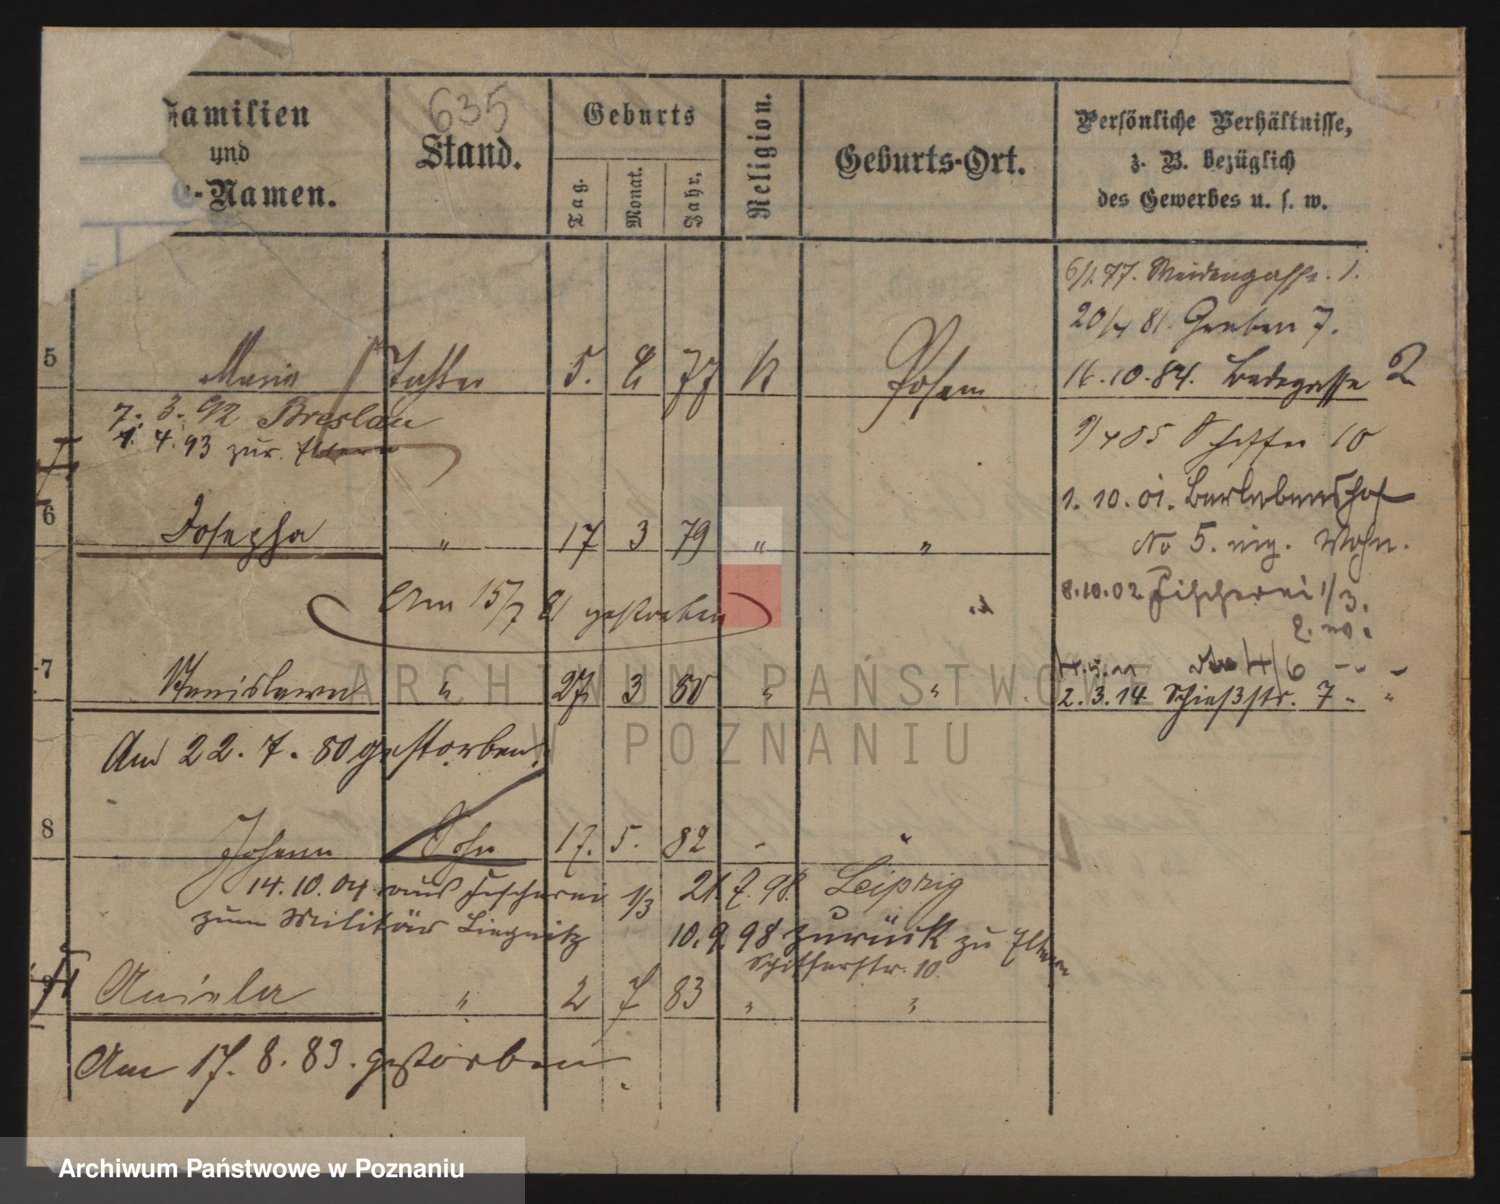 635
Familien
und
-Namen.
Stand.
Geburts
Tag.
Monat.
Jahr.
Religion.
Geburts-Ort.
Persönliche Verhältnisse,
z. B. bezüglich
des Gewerbes u. s. w.
6/1. 77. Weidengasse. 1.
20/4 81. Graben 7.
5 Maria Tochter 5. 77 K Posen
16.10.84. Badegasse 2
7. 3. 92 Breslau
1. 4. 93 zur. Eltern
9/4 85 10
1. 10. 01. Berlebenshof
6 Josepha " 17 3 79 " "
No 5. Wohn.
8.10.02 Fischerei 1/3.
Am 15/7 81 gestorben
7 Stanislawa " 27. 3 80 " "
2. 3. 14 Schießstr. 7 - "
Am 22. 7. 80 gestorben.
8 Johann Sohn 17. 5. 82
14.10.04 aus Fischerei 1/3
21. 7. 98. Leipzig
zum Militär Liegnitz
10. 9. 98 zurück zu Eltern
Schifferstr. 10.
Aniela " 2 7 83 " "
Am 17. 8. 83. gestorben.
ARCHIWUM PAŃSTWOWE
W POZNANIU
Archiwum Państwowe w Poznaniu